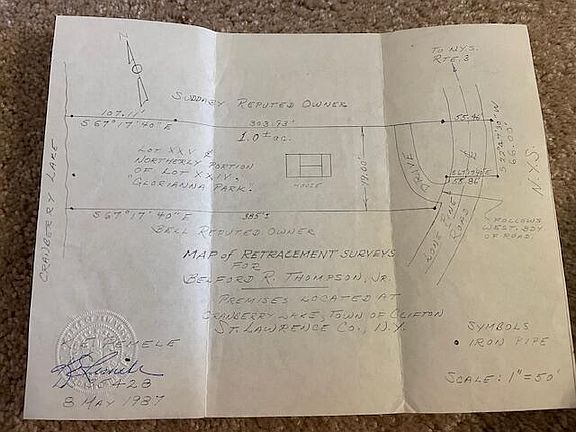 N
TO N.Y.S.
RTE. 3
SUDDABY REPUTED OWNER
107.11'
S 67° 17' 40" E
303.73'
55.46
1.0 ± ac.
LOT XXV &
NORTHERLY PORTION
OF LOT XXIV.
"GLORIANNA PARK."
HOUSE
DRIVE
55.86'
66.00'
N.Y.S.
CRANBERRY LAKE
S 67° 17' 40" E
385'±
LONE PINE
ROAD
FOLLOWS
WEST. BDY
OF ROAD.
BELL REPUTED OWNER
MAP of RETRACEMENT SURVEYS
FOR
BELFORD R. THOMPSON, JR.
PREMISES LOCATED AT
CRANBERRY LAKE, TOWN OF CLIFTON
ST. LAWRENCE CO., N.Y.
REMELE
8 MAY 1987
SYMBOLS
IRON PIPE
SCALE: 1" = 50'